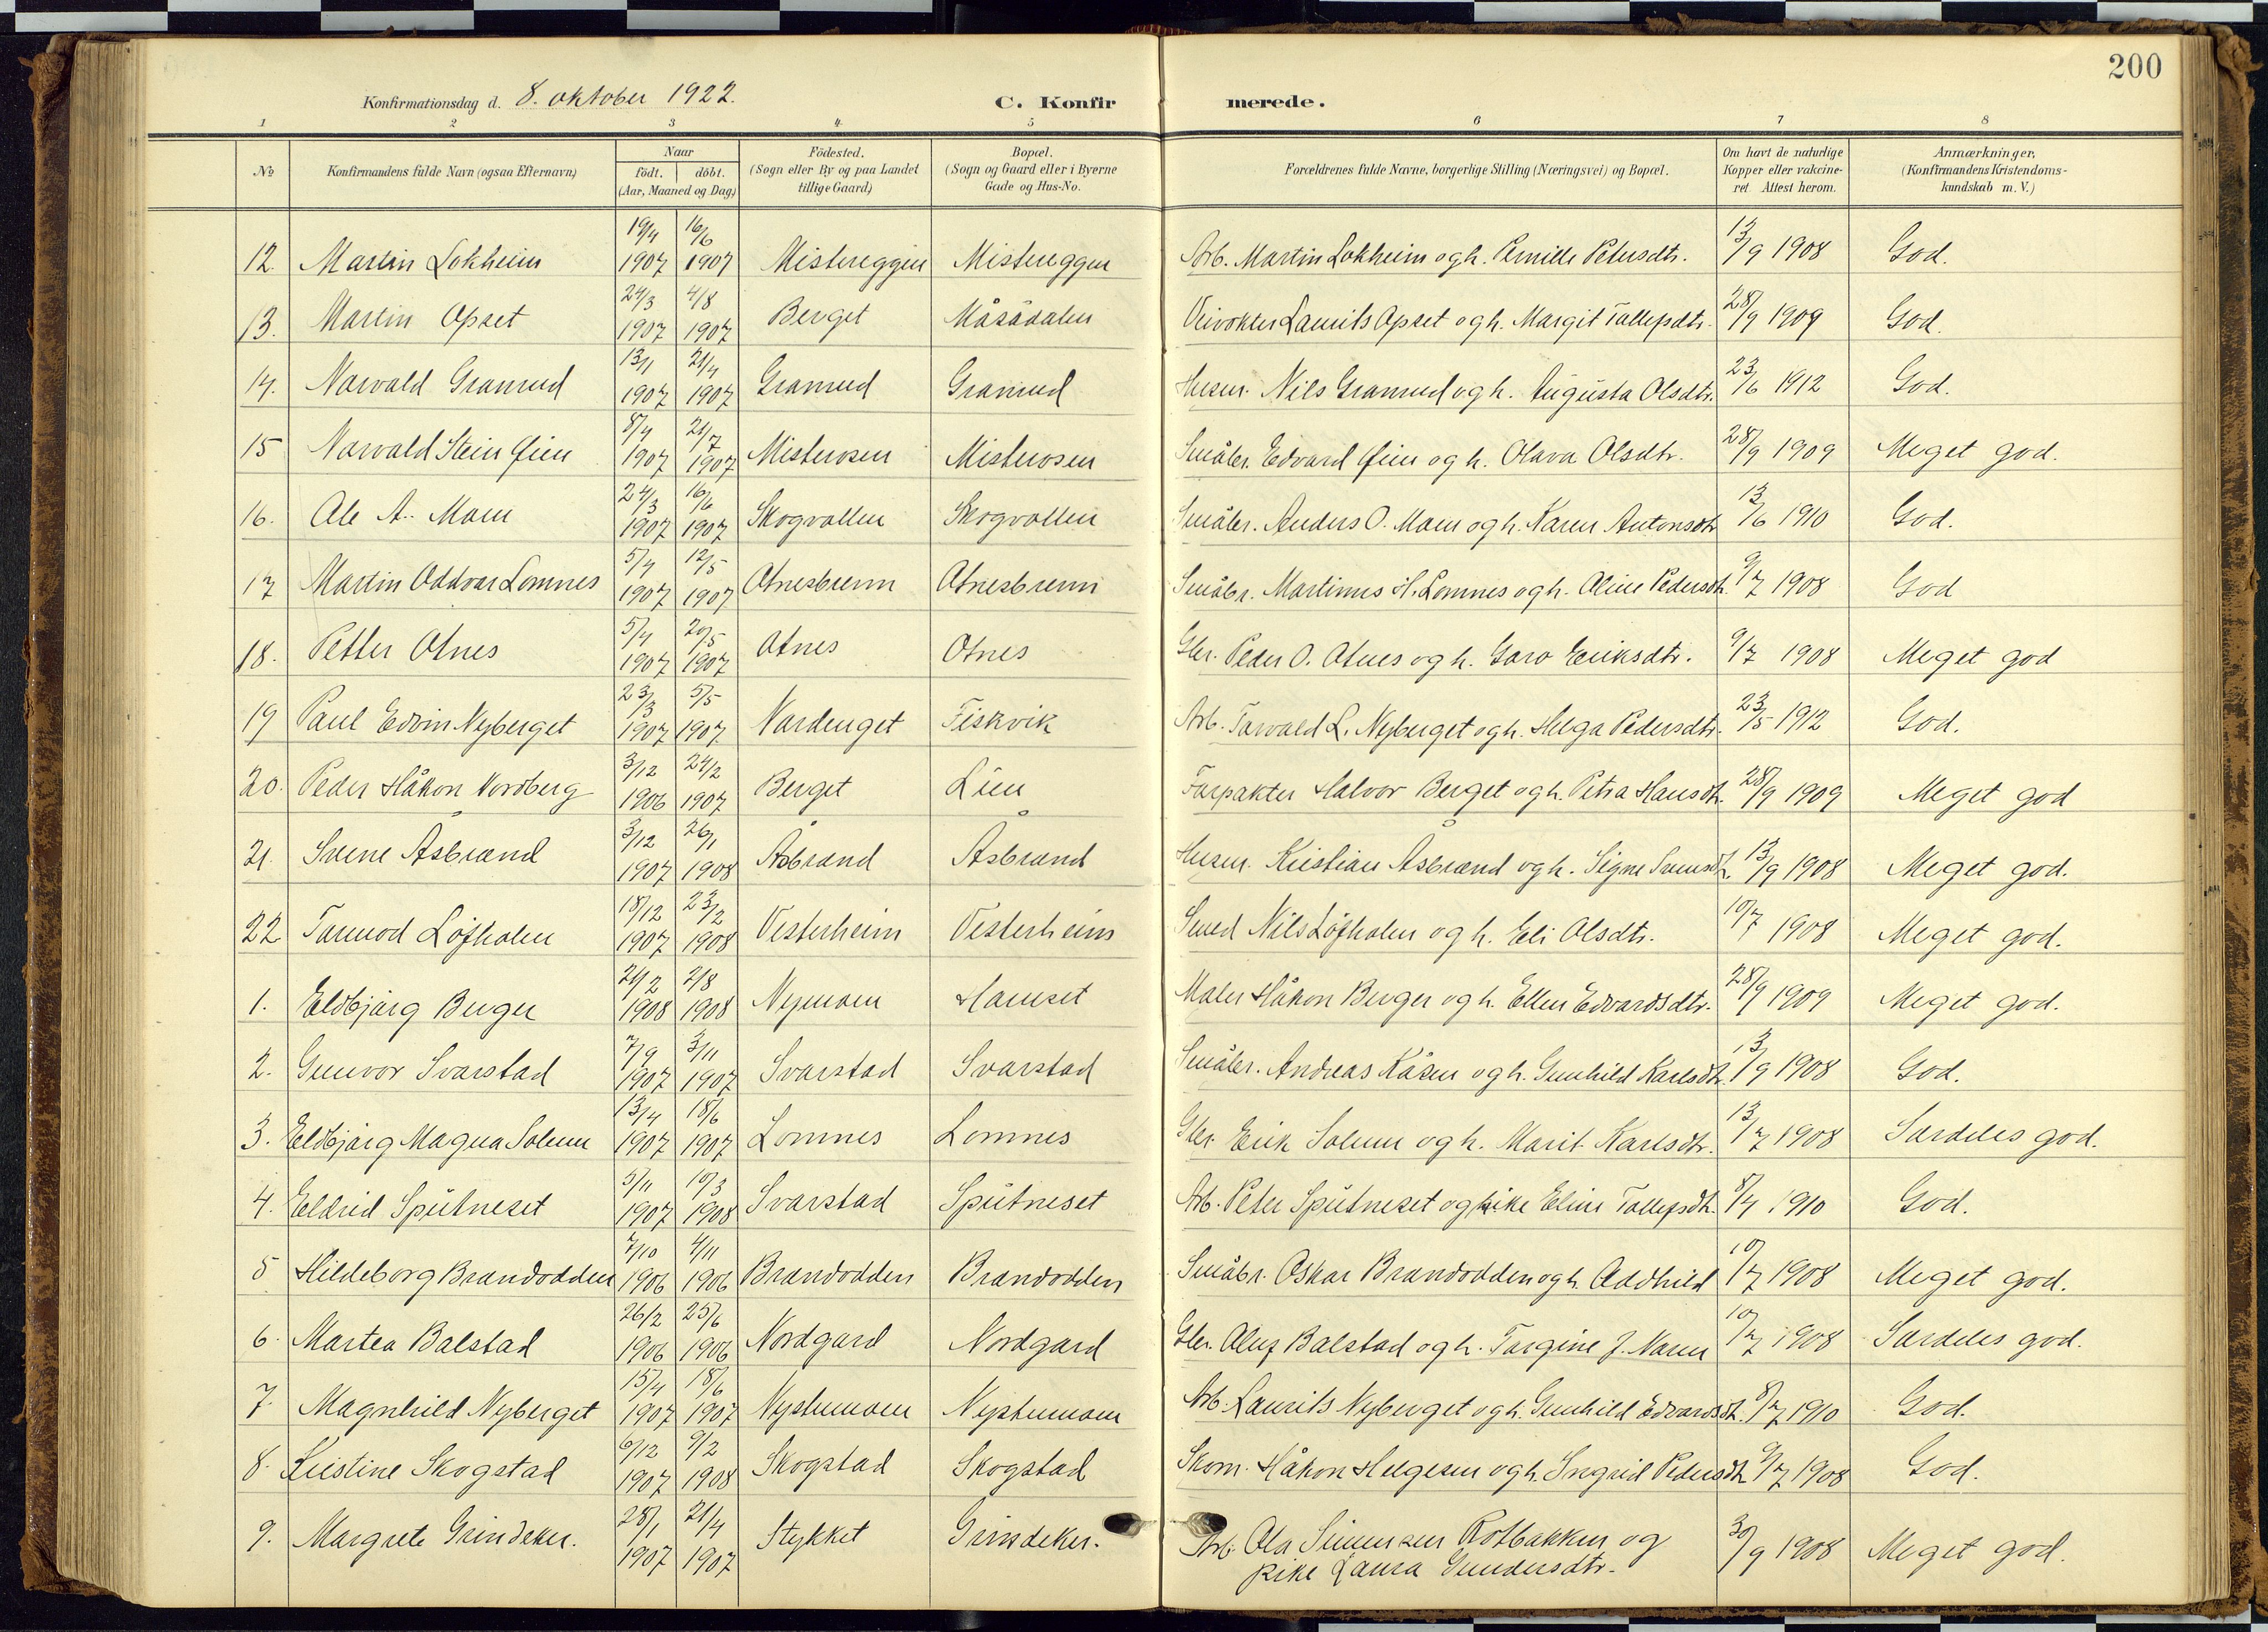 200
Konfirmationsdag d. 8. oktober 1922.
C. Konfirmerede.
1 2 3 4 5 6 7 8
No
Konfirmandens fulde Navn (ogsaa Efternavn)
Naar
födt. döbt.
(Aar, Maaned og Dag)
Födested.
(Sogn eller By og paa Landet
tillige Gaard)
Bopæl.
(Sogn og Gaard eller i Byerne
Gade og Hus-No.
Forældrenes fulde Navne, borgerlige Stilling (Næringsvei) og Bopæl.
Om havt de naturlige
Kopper eller vakcine-
ret. Attest herom.
Anmærkninger,
(Konfirmandens Kristendoms-
kundskab m. V.)
12. Martin Lokheim 19/4 1907 16/6 1907 Mistereggen Mistereggen Arb. Martin Lokheim og h. Pernille Petersdtr. 13/9 1908 God.
13. Martin Opset 24/3 1907 4/8 1907 Berget Måsådalen Veivokter Laurits Opset og h. Margit Tollefsdtr. 28/9 1909 God.
14. Narvald Granrud 13/1 1907 21/4 1907 Granrud Granrud Husm. Nils Granrud og h. Augusta Olsdtr. 23/6 1912 God.
15 Narvald Stein Øien 8/4 1907 21/7 1907 Misterosen Misterosen Småbr. Edvard Øien og h. Olava Olsdtr. 28/9 1909 Meget god.
16. Ole A. Moen 24/3 1907 16/6 1907 Skogvollen Skogvollen Småbr. Anders O. Moen og h. Karen Antonsdtr 13/6 1910 God.
17 Martin Oddvar Lomnes 5/4 1907 12/5 1907 Otnesbrenn Otnesbrenn Småbr. Martinus H. Lomnes og h. Oline Pedersdtr. 9/7 1908 God
18. Petter Otnes 5/4 1907 20/5 1907 Otnes Otnes Gbr. Peder O. Otnes og h. Goro Eriksdtr. 9/7 1908 Meget god
19 Paul Edvin Nyberget 23/3 1907 5/5 1907 Nordenget Fiskvik Arb. Torvald L. Nyberget og h. Helga Pedersdtr. 23/5 1912 God.
20. Peder Håkon Nordberg 3/12 1906 24/2 1907 Berget Lien Forpakter Halvor Berget og h. Petra Hansdtr. 28/9 1909 Meget god
21. Svene Åsbrænd 3/12 1907 26/1 1908 Åsbrænd Åsbrænd Husm. Kristian Åsbrænd og h. Signe Svensdtr. 13/9 1908 Meget god.
22. Tormod Løfholen 18/12 1907 23/2 1908 Vesterheim Vesterheim Smed Nils Løfholen og h. Eli Olsdtr. 10/7 1908 Meget god.
1. Eldbjørg Berger 21/2 1908 2/8 1908 Nymoen Hamset Maler Håkon Berger og h. Ellen Edvardsdtr. 28/9 1909 Meget god.
2. Gunvor Svarstad 7/9 1907 3/11 1907 Svarstad Svarstad Småbr. Andreas Kåsen og h. Gunhild Karlsdtr. 13/9 1908 God.
3. Eldbjørg Magna Solum 13/4 1907 18/6 1907 Lomnes Lomnes Gbr. Erik Solum og h. Marit Karlsdtr. 13/7 1908 Særdeles god.
4. Eldrid Sputneset 5/11 1907 19/3 1908 Svarstad Sputneset Arb. Peter Sputneset og pike Eline Tollefsdtr. 8/4 1910 God.
5 Hildeborg Brandodden 7/10 1906 4/11 1906 Brandodden Brandodden Småbr. Oskar Brandodden og h. Oddhild 10/7 1908 Meget god.
6. Martea Balstad 26/2 1906 25/6 1906 Nordgard Nordgard Gbr. Oluf Balstad og h. Torgine J. Noren 10/7 1908 Særdeles god.
7. Magnhild Nyberget 15/4 1907 18/6 1907 Nystumoen Nystumoen Arb. Laurits Nyberget og h. Gunhild Edvardsdtr. 8/7 1910 God.
8. Kristine Skogstad 6/12 1907 9/2 1908 Skogstad Skogstad Skom. Håkon Helgesen og h. Ingrid Pedersdtr 9/7 1908 God.
9. Margrete Grindeker. 28/1 1907 21/4 1907 Stykket Grindeker. Arb. Ola Simensen Rotbakken og
pike Laura Gundersdtr. 30/9 1908 Meget god.